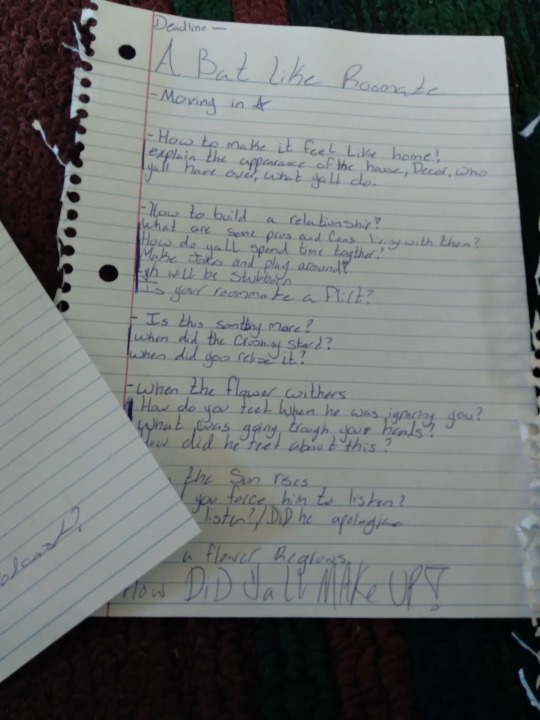 Deadline —
A Bat like Roomate
- Moving in
- How to make it feel Like home!
explain the appearance of the house, Decor, who
yall have over, what yall do.
- How to build a relationship?
What are some pros and Cons living with them?
How do yall spend time togther?
Make Jokes and play around?
will be Stubborn
Is your roommate a flirt?
- Is this somthing more?
when did the Crushing start?
when did you relize it?
- when the flower withers
How do you feel when he was ignoring you?
What was going trough your heads?
How did he feel about this?
the Sun rises
you force him to listen?
listen?/DiD he apologize
a flower Regrows
How DiD Yall MAKe UP?
odcast?